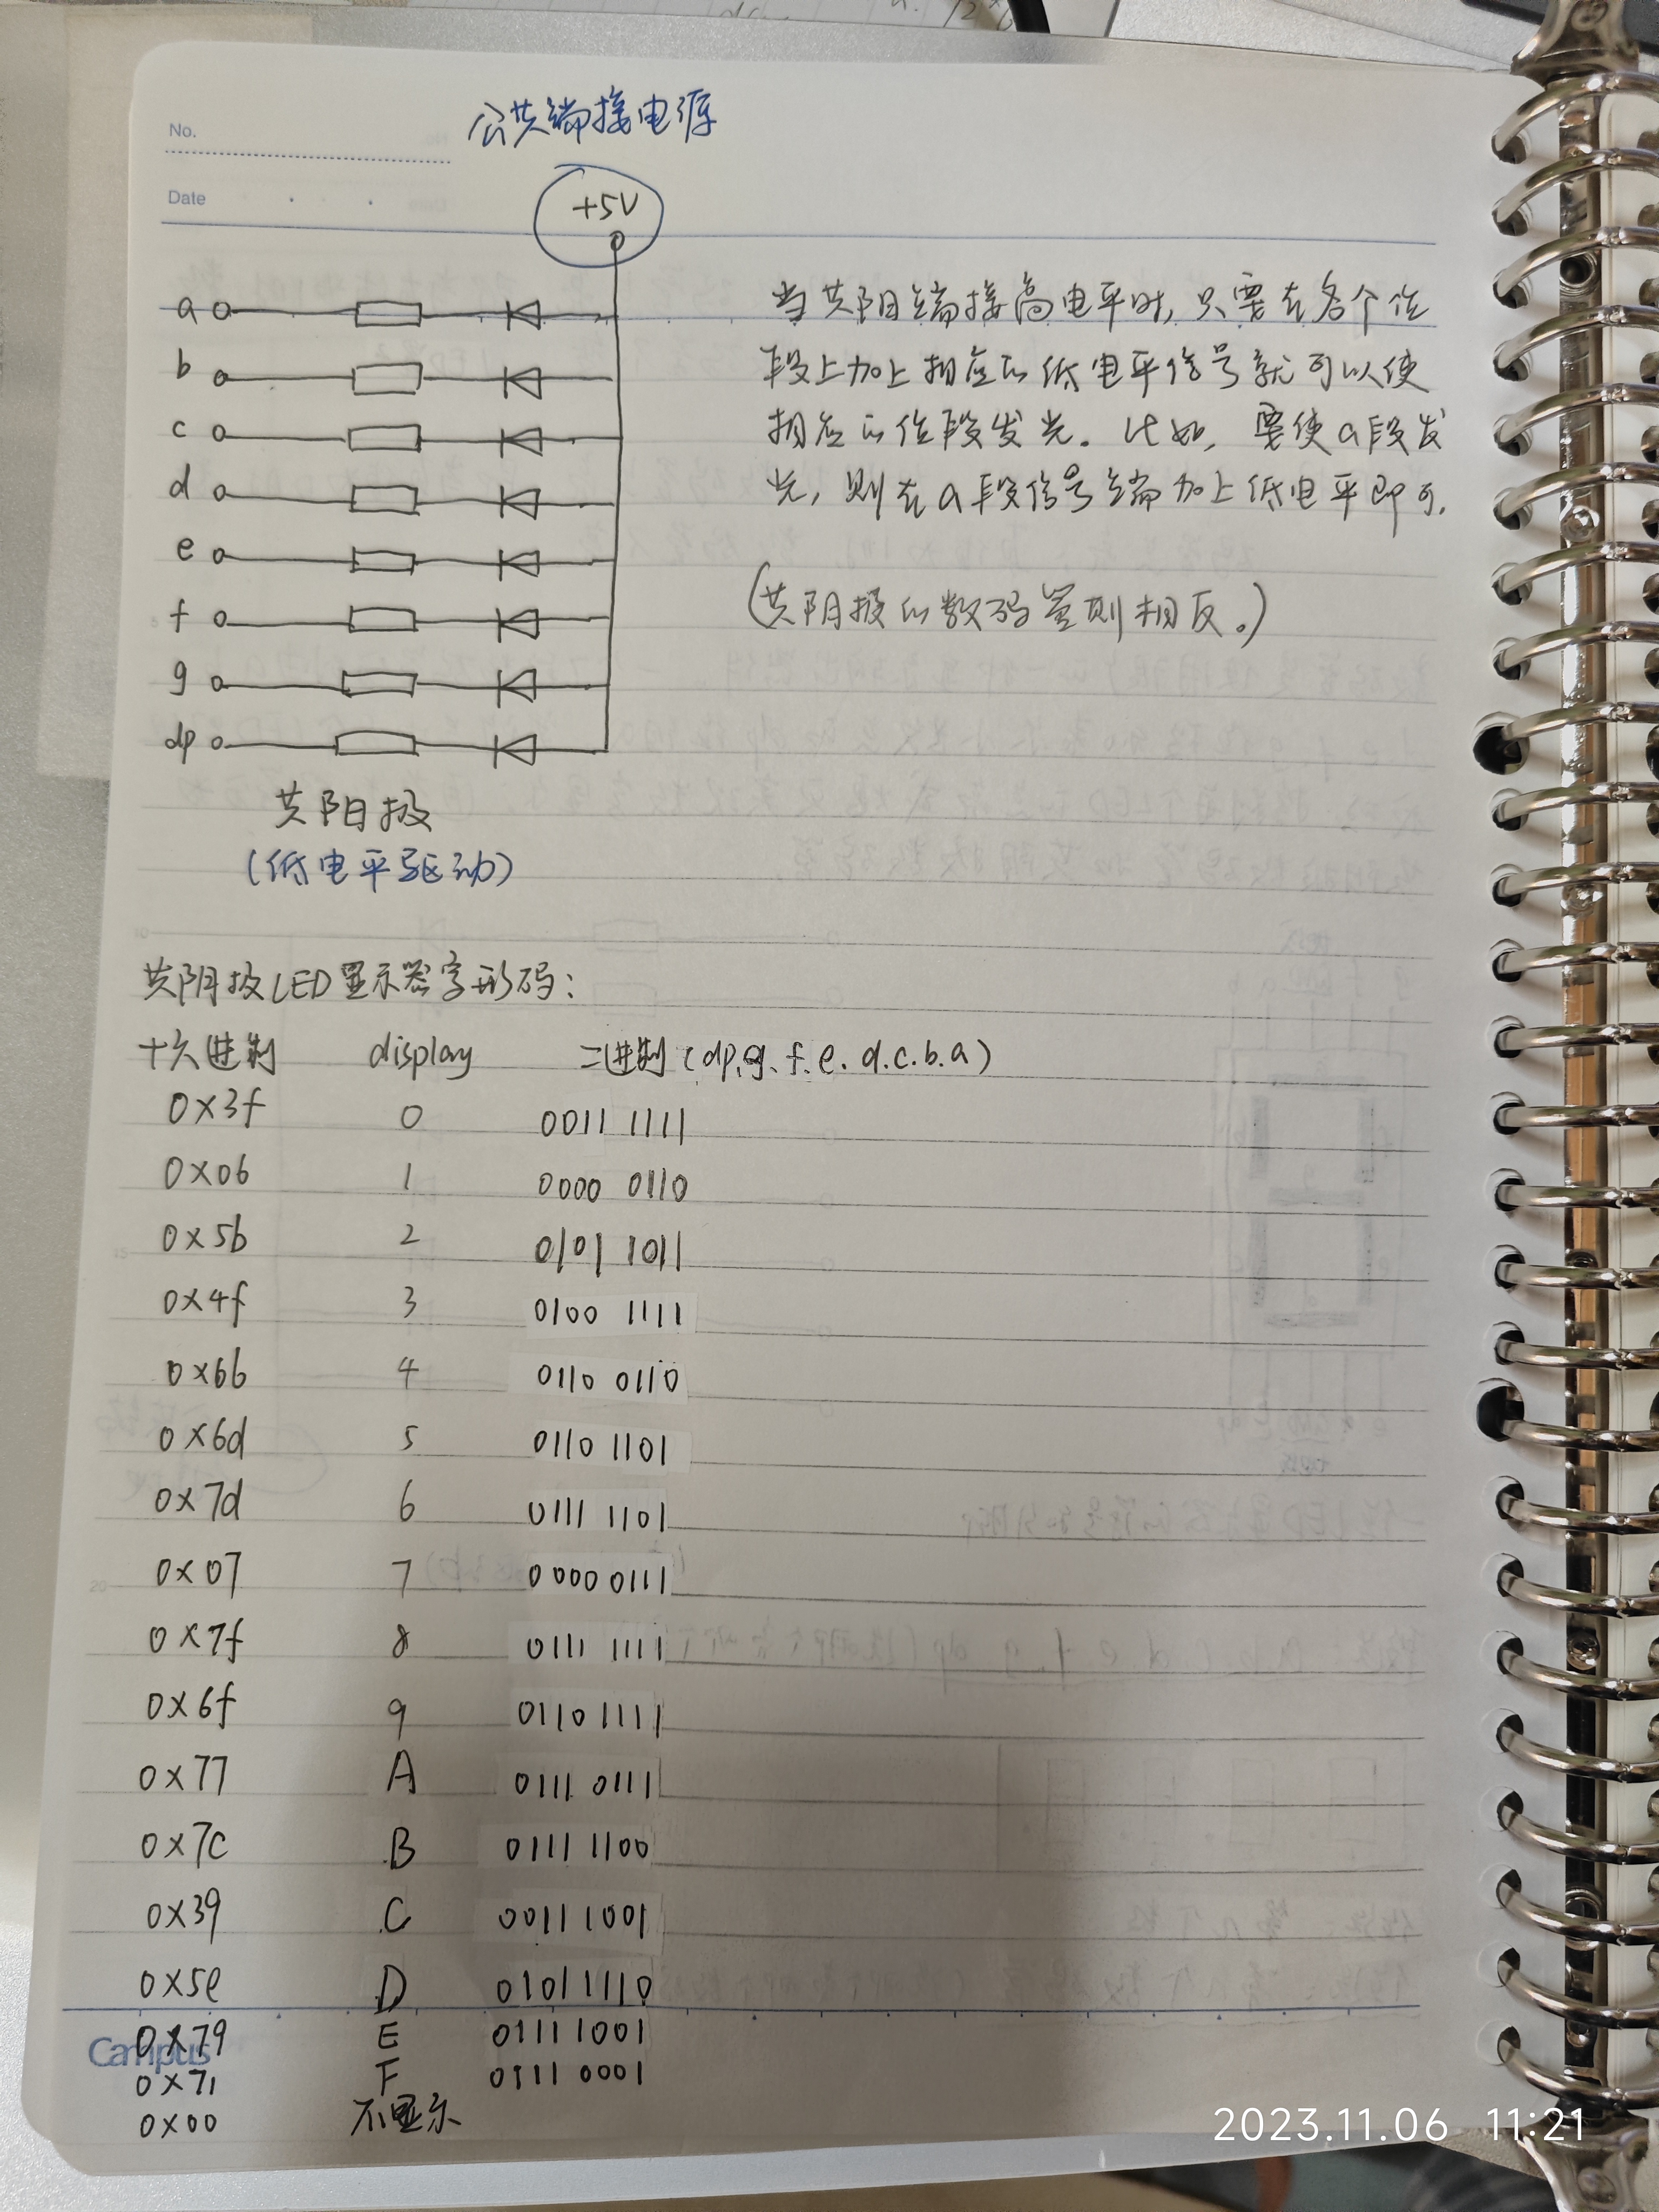 公共端接电源
No.
Date
+5V
a
b
c
d
e
f
g
dp
当共阳端接高电平时,只要在各个位
段上加上相应的低电平信号就可以使
相应的位段发光。比如,要使a段发
光,则在a段信号端加上低电平即可.
(共阴极的数码管则相反。)
共阳极
(低电平驱动)
共阴极LED显示器字形码:
十六进制 display 二进制(dp.g.f.e.d.c.b.a)
0x3f 0 0011 1111
0x06 1 0000 0110
0x5b 2 0101 1011
0x4f 3 0100 1111
0x66 4 0110 0110
0x6d 5 0110 1101
0x7d 6 0111 1101
0x07 7 0000 0111
0x7f 8 0111 1111
0x6f 9 0110 1111
0x77 A 0111 0111
0x7c B 0111 1100
0x39 C 0011 1001
0x5e D 0101 1110
0x79 E 0111 1001
Campus
0x71 F 0111 0001
0x00 不显示
2023.11.06 11:21